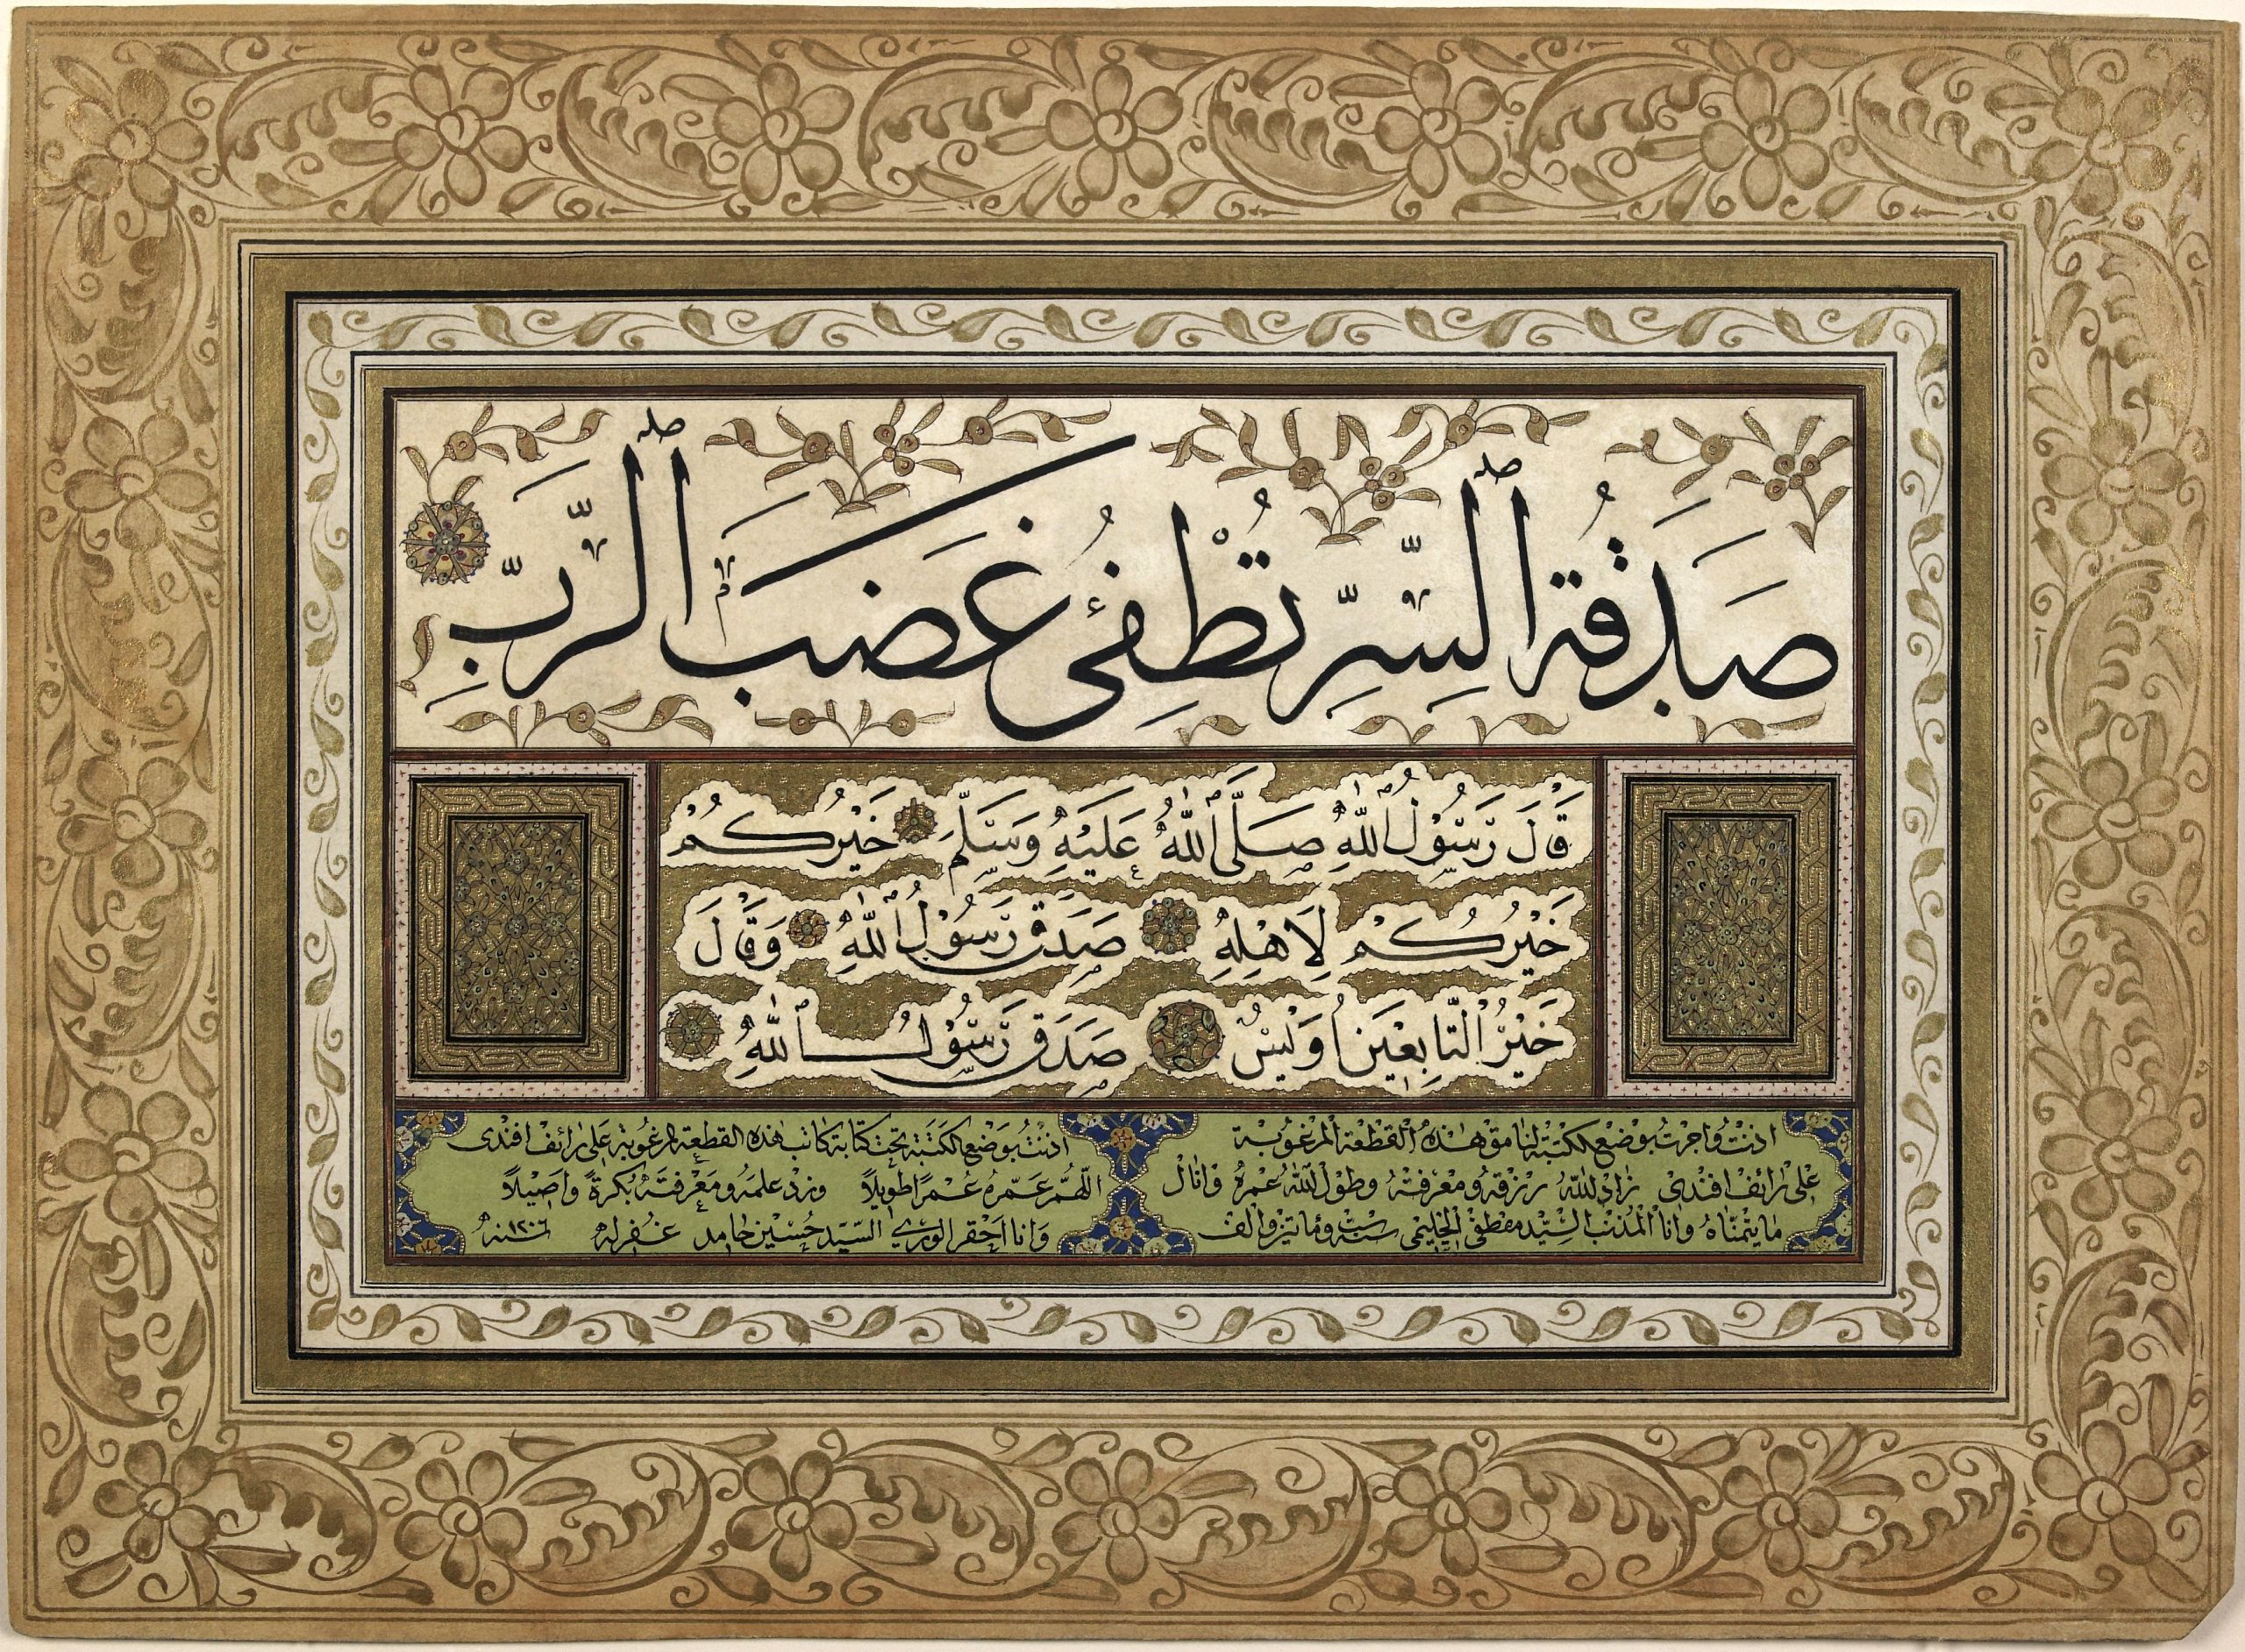 صَدَقَةُ ٱلسِّرِّ تُطْفِئُ غَضَبَ ٱلرَّبِّ
قَالَ رَسُوْلُ ٱللّٰهِ صَلَّى ٱللّٰهُ عَلَيْهِ وَسَلَّمَ خَيْرُكُمْ
خَيْرُكُمْ لِاَهْلِهِ صَدَقَ رَسُوْلُ ٱللّٰهِ وَقَالَ
خَيْرُ التَّابِعِيْنَ اُوَيْسٌ صَدَقَ رَسُوْلُ ٱللّٰهِ
اذنتُ واجزتُ بوضع الكتبة لنامق هٰذه القطعة المرغوبة
على رائف افندى زاد اللّٰه رزقه ومعرفته وطول اللّٰه عمره وانال
ما يتمناه وانا المذنب السيد مصطفى الحليمى سنة ست ومائتين والف
اذنتُ بوضع الكتبة تحت كتابة كاتب هذه القطعة المرغوبة على رائف افندى
اللّٰهم عمره عمرًا طويلاً وزد علمه ومعرفته بكرةً واصيلاً
وانا احقر الورى السيد حسين حامد غفر له سنة ١٢٠٦